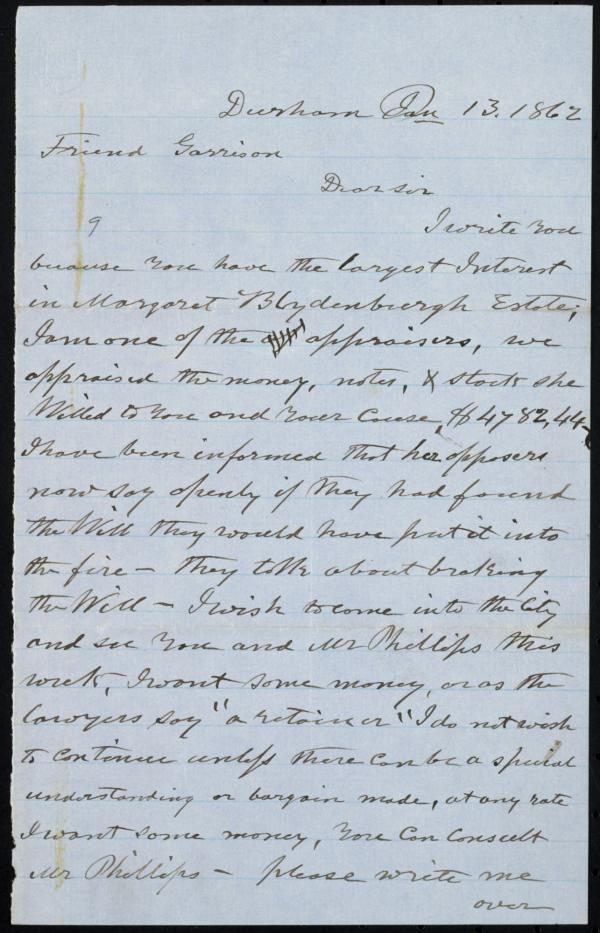 Durham Jan 13. 1862
Friend Garrison
Dear sir
9
I write you
because you have the largest Interest
in Margaret Blydenburgh Estate,
I am one of the appraisers, we
appraised the money, notes, & stock she
Willed to you and your Cause, $4782,44
I have been informed that her opposers
now say openly if they had found
the Will they would have put it into
the fire – they talk about braking
the Will – I wish to come into the City
and see you and Mr Phillips this
week, I want some money, or as the
lawyers say "a retainer" I do not wish
to continue unless there can be a special
understanding or bargain made, at any rate
I want some money, you can consult
Mr Phillips – please write me
over